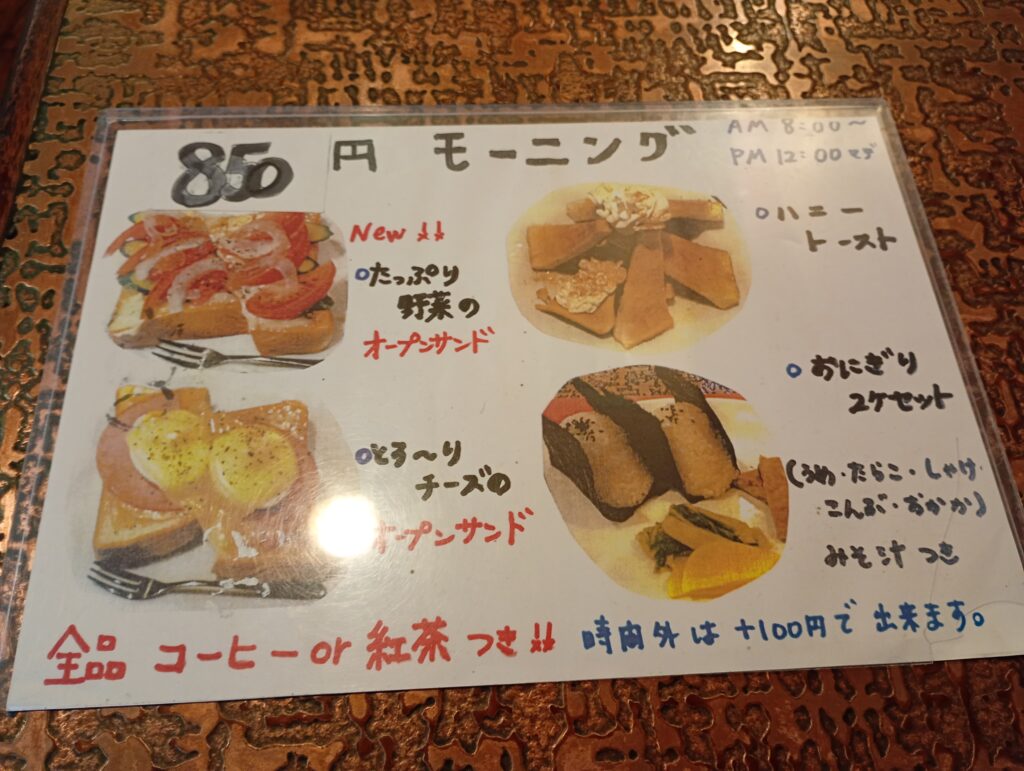 850円 モーニング
AM 8:00〜
PM 12:00マデ
New!!
たっぷり
野菜の
オープンサンド
ハニー
トースト
とろ〜り
チーズの
オープンサンド
おにぎり
2ケセット
(うめ・たらこ・しゃけ
こんぶ・おかか)
みそ汁つき
全品 コーヒーor紅茶つき!!
時間外は+100円で出来ます。